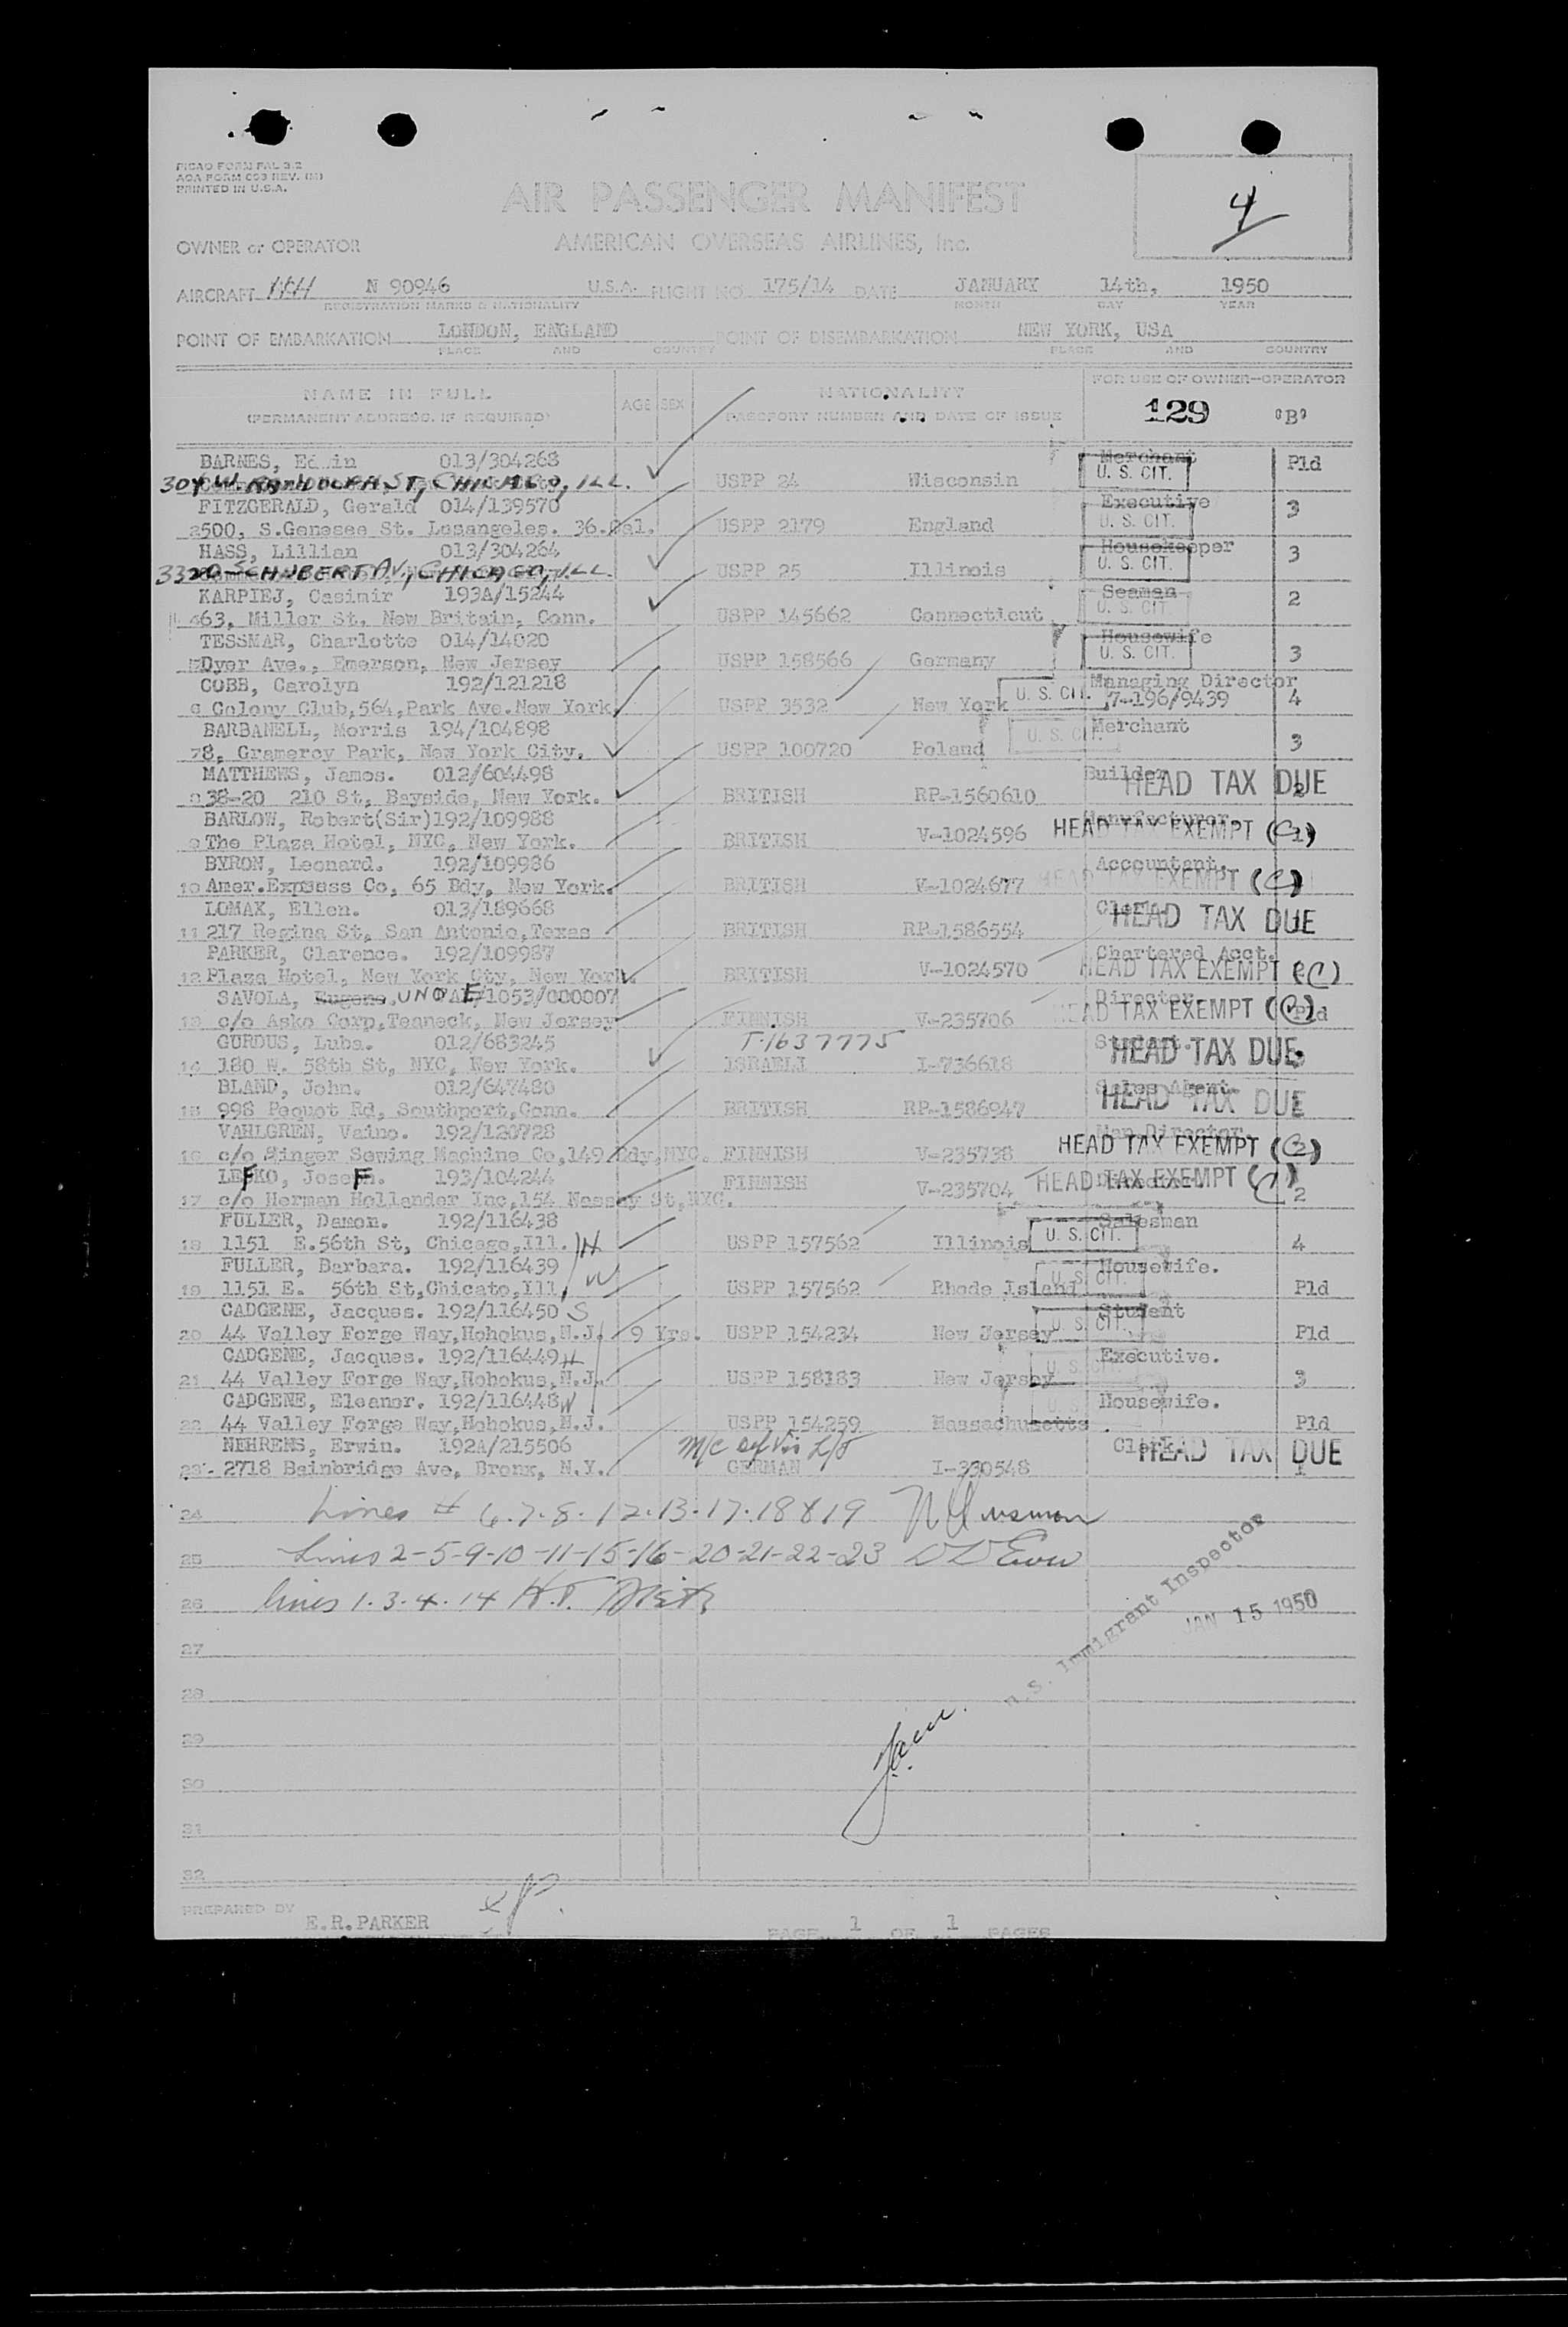 PICAO FORM PAL 3-2
AOA FORM 693 REV. (M)
PRINTED IN U.S.A.
AIR PASSENGER MANIFEST
4
OWNER or OPERATOR AMERICAN OVERSEAS AIRLINES, Inc.
AIRCRAFT N 90946 U.S.A. FLIGHT NO. 175/14 DATE JANUARY 14th, 1950
REGISTRATION MARKS & NATIONALITY MONTH DAY YEAR
POINT OF EMBARKATION LONDON, ENGLAND POINT OF DISEMBARKATION NEW YORK, USA
PLACE AND COUNTRY PLACE AND COUNTRY
NAME IN FULL AGE SEX NATIONALITY FOR USE OF OWNER-OPERATOR
(PERMANENT ADDRESS, IF REQUIRED) PASSPORT NUMBER AND DATE OF ISSUE 129 "B"
BARNES, Edwin 013/304268 Merchant Pld
304 W. RANDOLPH ST, CHICAGO, ILL. USPP 24 Wisconsin U. S. CIT.
FITZGERALD, Gerald 014/139570 Executive 3
2500, S.Genesee St. Losangeles. 36.Cal. USPP 2179 England U. S. CIT.
HASS, Lillian 013/304264 Housekeeper 3
3320 SCHUBERT AV, CHICAGO, ILL. USPP 25 Illinois U. S. CIT.
KARPIEJ, Casimir 193A/15244 Seaman 2
463, Miller St, New Britain, Conn. USPP 145662 Connecticut U. S. CIT.
TESSMAR, Charlotte 014/14020 Housewife
5 Dyer Ave., Emerson, New Jersey USPP 158566 Germany U. S. CIT. 3
COBB, Carolyn 192/121218 Managing Director
6 Colony Club,564,Park Ave.New York USPP 3532 New York U. S. CIT. 7-196/9439 4
BARBANELL, Morris 194/104898 Merchant
78, Gramercy Park, New York City. USPP 100720 Poland U. S. CIT. 3
MATTHEWS, James. 012/604498 Builder HEAD TAX DUE
8 38-20 210 St, Bayside, New York. BRITISH RP-1560610
BARLOW, Robert(Sir)192/109988 Manufacturer.
9 The Plaza Hotel, NYC, New York. BRITISH V-1024596 HEAD TAX EXEMPT (C)
BYRON, Leonard. 192/109986 Accountant.
10 Amer.Express Co, 65 Bdy, New York. BRITISH V-1024677 HEAD TAX EXEMPT (C)
LOMAX, Ellen. 013/189668 Clerk
11 217 Regina St, San Antonio,Texas BRITISH RP-1586554 HEAD TAX DUE
PARKER, Clarence. 192/109987 Chartered Acct.
12 Plaza Hotel, New York Cty, New York. BRITISH V-1024570 HEAD TAX EXEMPT (C)
SAVOLA, Eugene. UNO 1053/000007 Director.
13 c/o Asko Corp,Teaneck, New Jersey FINNISH V-235706 HEAD TAX EXEMPT Pld
GURDUS, Luba. 012/683245 T-1637775 Student.
14 180 W. 58th St, NYC, New York. ISRAELI I-736618 HEAD TAX DUE
BLAND, John. 012/647480 Sales Agent.
15 998 Pequot Rd, Southport,Conn. BRITISH RP-1586947 HEAD TAX DUE
VAHLGREN, Vaino. 192/120728 Man.Director.
16 c/o Singer Sewing Machine Co,149 Bdy,NYC. FINNISH V-235738 HEAD TAX EXEMPT
LEFKO, Josef. 193/104244 FINNISH V-235704 HEAD TAX EXEMPT (C) 2
17 c/o Herman Hollander Inc,154 Nassay St,NYC.
FULLER, Damon. 192/116438 Salesman
18 1151 E.56th St, Chicago,Ill. H USPP 157562 Illinois U. S. CIT. 4
FULLER, Barbara. 192/116439 Housewife.
19 1151 E. 56th St,Chicato,Ill, W USPP 157562 Rhode Island U. S. CIT. Pld
CADGENE, Jacques. 192/116450 S Student
20 44 Valley Forge Way,Hohokus,N.J. 9 Yrs. USPP 154234 New Jersey U. S. CIT. Pld
CADGENE, Jacques. 192/116449 H Executive.
21 44 Valley Forge Way,Hohokus,N.J. USPP 158183 New Jersey U. S. CIT. 3
CADGENE, Eleanor. 192/116448 W Housewife.
22 44 Valley Forge Way,Hohokus,N.J. USPP 154259 Massachusetts Pld
NEHRENS, Erwin. 192A/215506 Clerk. HEAD TAX DUE
23 2718 Bainbridge Ave, Bronx, N.Y. GERMAN I-330548 1
24 Lines # 6.7.8.12.13.17.18 & 19
25 Lines 2-5-9-10-11-15-16-20-21-22-23
26 lines 1.3.4.14 H.T.
U.S. Immigrant Inspector
JAN 15 1950
27
28
29
30
31
32
PREPARED BY E.R.PARKER PAGE 1 OF 1 PAGES